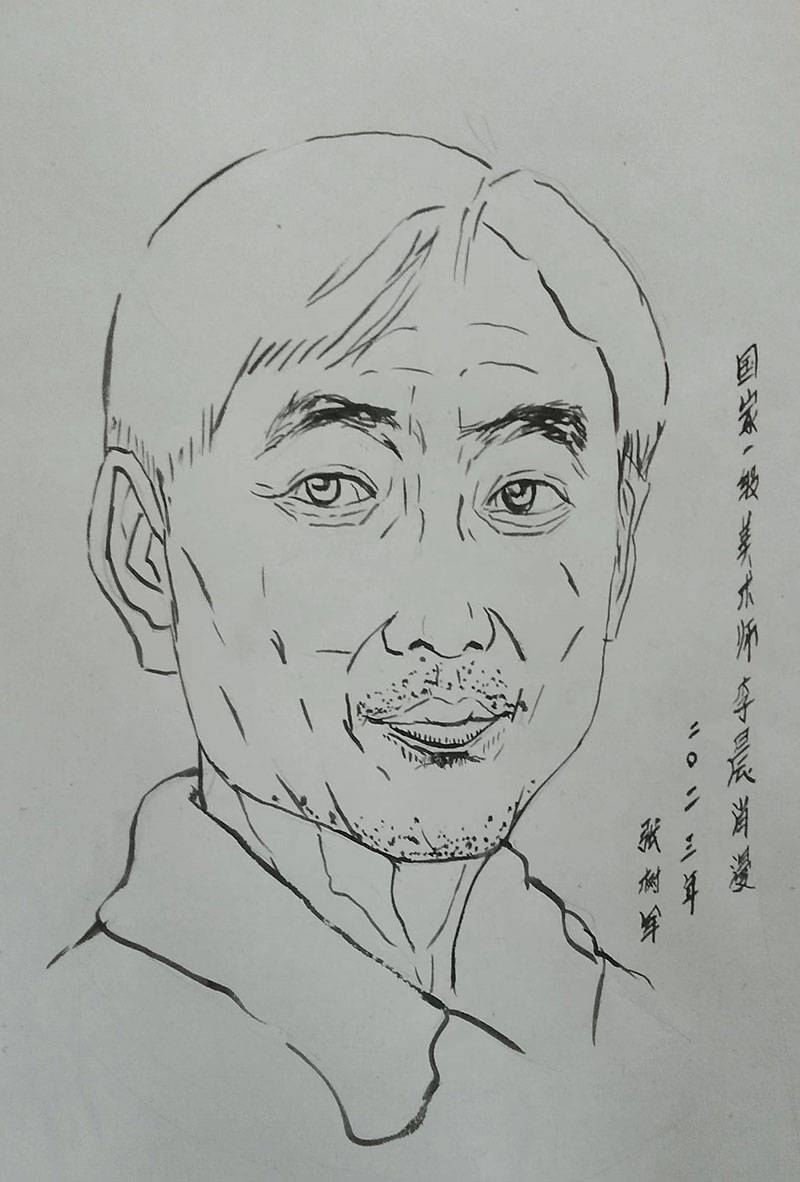 国家一级美术师李晨肖漫
二〇二三年
张树军